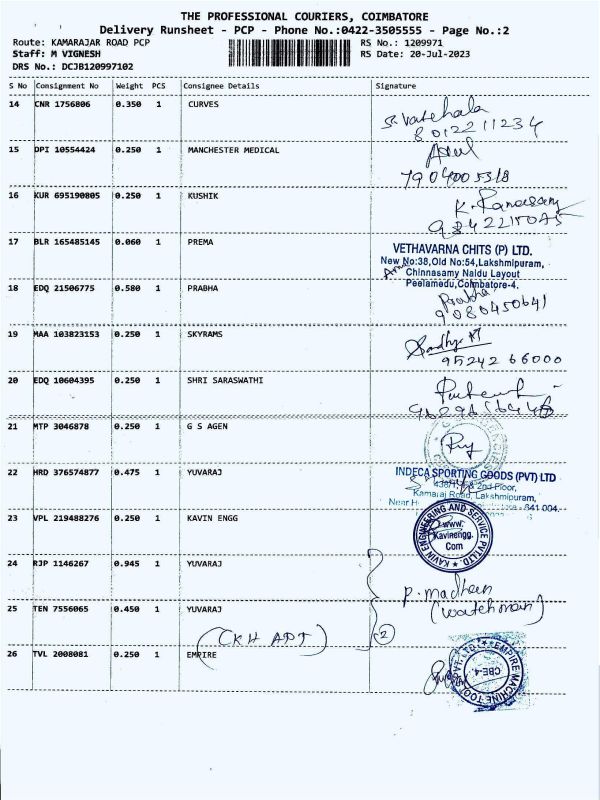 THE PROFESSIONAL COURIERS, COIMBATORE
Delivery Runsheet - PCP - Phone No.:0422-3505555 - Page No.:2
Route: KAMARAJAR ROAD PCP RS No.: 1209971
Staff: M VIGNESH RS Date: 20-Jul-2023
DRS No.: DCJB120997102
S No Consignment No Weight PCS Consignee Details Signature
14 CNR 1756806 0.350 1 CURVES
8012211234
15 DPI 10554424 0.250 1 MANCHESTER MEDICAL
16 KUR 695190805 0.250 1 KUSHIK
17 BLR 165485145 0.060 1 PREMA
VETHAVARNA CHITS (P) LTD.
New No:38,Old No:54,Lakshmipuram,
Chinnasamy Naidu Layout
Peelamedu,Coimbatore-4.
18 EDQ 21506775 0.580 1 PRABHA
Prabha
9080450641
19 MAA 103823153 0.250 1 SKYRAMS
95242 66000
20 EDQ 10604395 0.250 1 SHRI SARASWATHI
21 MTP 3046878 0.250 1 G S AGEN
22 HRD 376574877 0.475 1 YUVARAJ
INDECA SPORTING GOODS (PVT) LTD
2nd Floor,
Kamaraj Road, Lakshmipuram,
641 004.
23 VPL 219488276 0.250 1 KAVIN ENGG
KAVIN ENGINEERING AND SERVICE PVT LTD.
www.
Kavinengg.
Com
24 RJP 1146267 0.945 1 YUVARAJ
P. madhan
(watchman)
25 TEN 7556065 0.450 1 YUVARAJ
(CKH APT) 2
26 TVL 2008081 0.250 1 EMPIRE
EMPIRE MACHINE TOOL PVT. LTD.
CBE-4.